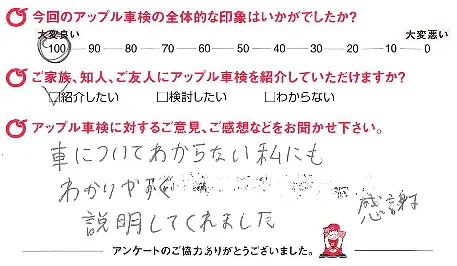 今回のアップル車検の全体的な印象はいかがでしたか?
大変良い 大変悪い
100 - 90 - 80 - 70 - 60 - 50 - 40 - 30 - 20 - 10 - 0
ご家族、知人、ご友人にアップル車検を紹介していただけますか?
□紹介したい □検討したい □わからない
アップル車検に対するご意見、ご感想などをお聞かせ下さい。
車についてわからない私にも
わかりやすく
説明してくれました 感謝
アンケートのご協力ありがとうございました。